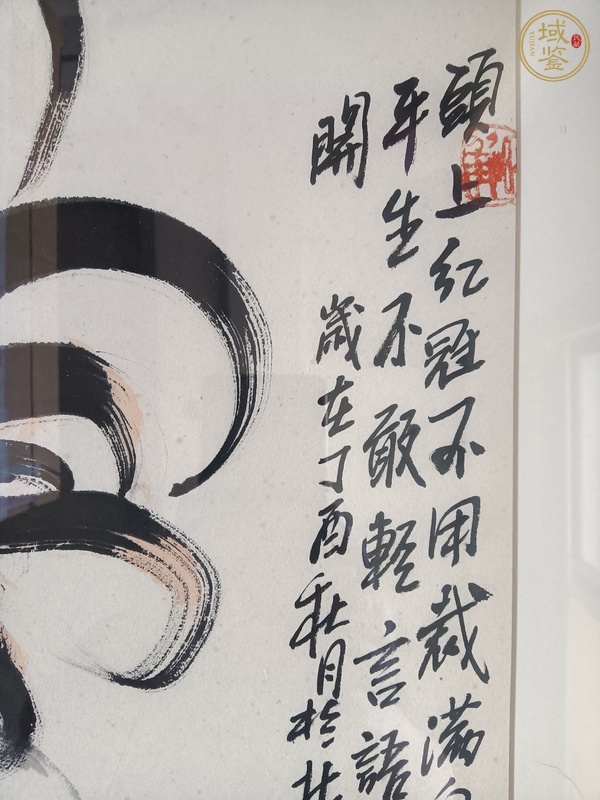 頭上红冠不用裁满
平生不敢輕言語
開
歲在丁酉秋月於
域鉴
YUJIAN